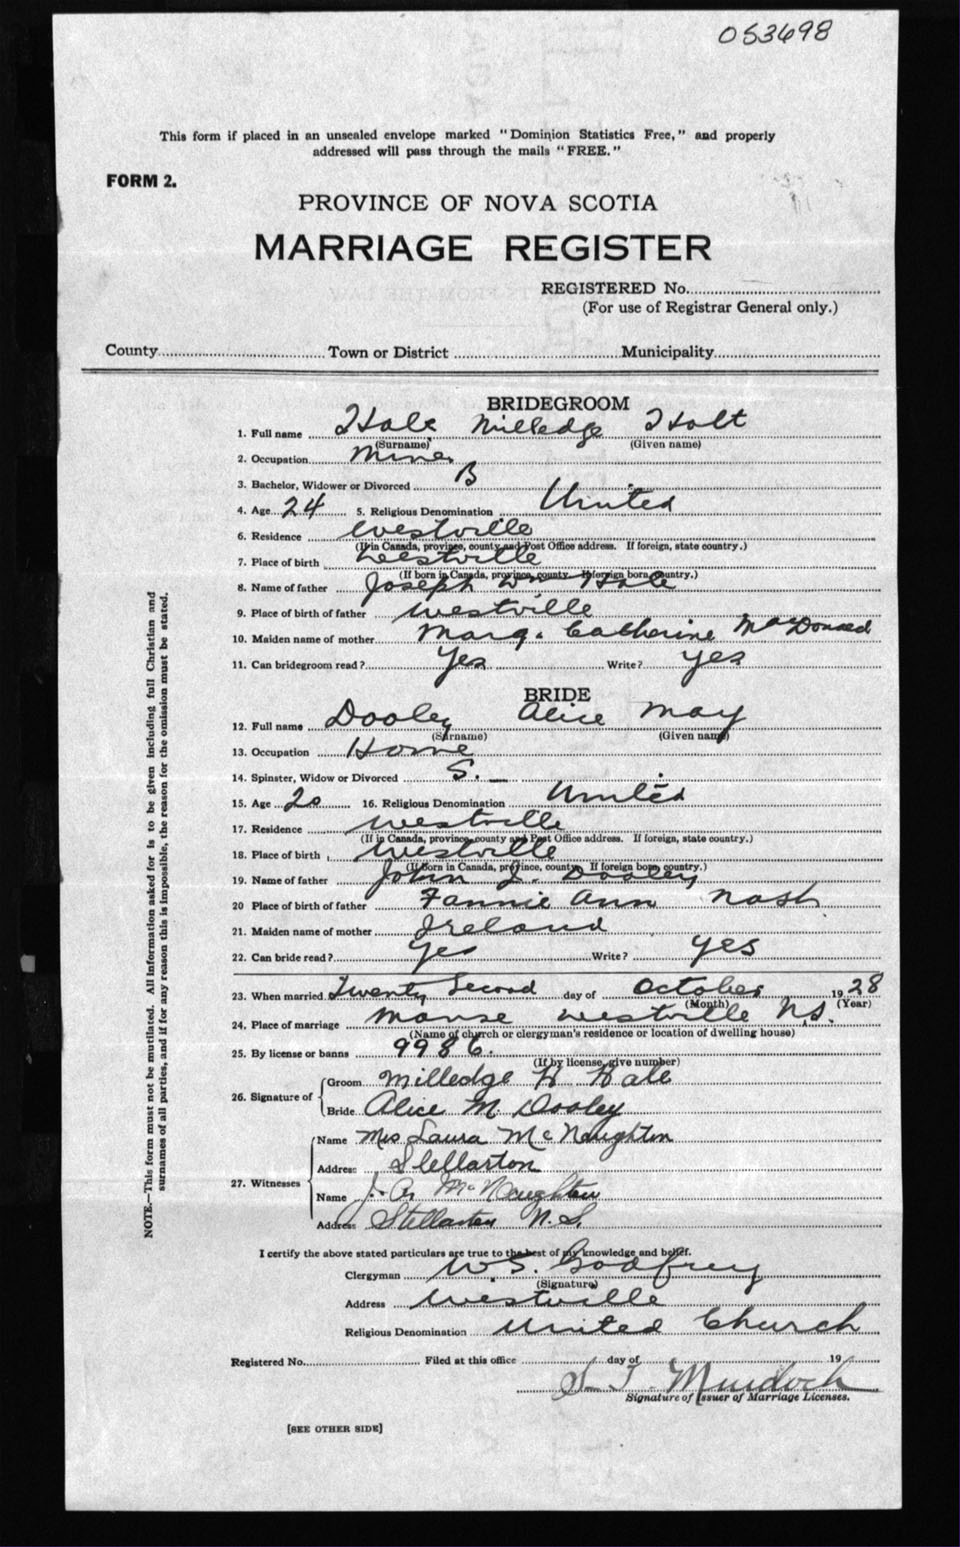 053698
This form if placed in an unsealed envelope marked "Dominion Statistics Free," and properly
addressed will pass through the mails "FREE."
FORM 2.
PROVINCE OF NOVA SCOTIA
MARRIAGE REGISTER
REGISTERED No.
(For use of Registrar General only.)
County Town or District Municipality
BRIDEGROOM
1. Full name Hale Milledge Holt
(Surname) (Given name)
2. Occupation Miner
3. Bachelor, Widower or Divorced B
4. Age 24 5. Religious Denomination United
6. Residence Westville
(If in Canada, province, county and Post Office address. If foreign, state country.)
7. Place of birth Westville
(If born in Canada, province, county. If foreign born, country.)
8. Name of father Joseph Wm Hale
9. Place of birth of father Westville
10. Maiden name of mother Marg. Catherine MacDonald
11. Can bridegroom read? Yes Write? yes
BRIDE
12. Full name Dooley Alice May
(Surname) (Given name)
13. Occupation Home
14. Spinster, Widow or Divorced S.
15. Age 20 16. Religious Denomination United
17. Residence Westville
(If in Canada, province, county and Post Office address. If foreign, state country.)
18. Place of birth Westville
(If born in Canada, province, county. If foreign born, country.)
19. Name of father John J. Dooley
20 Place of birth of father Fannie Ann Nash
21. Maiden name of mother Ireland
22. Can bride read? Yes Write? yes
23. When married Twenty Second day of October 1928
(Month) (Year)
24. Place of marriage Manse Westville N.S.
(Name of church or clergyman's residence or location of dwelling house)
25. By license or banns 9986.
(If by license, give number)
26. Signature of Groom Milledge H Hale
Bride Alice M. Dooley
27. Witnesses Name Mrs Laura McNaughton
Address Stellarton
Name J. A. McNaughton
Address Stellarton N.S.
I certify the above stated particulars are true to the best of my knowledge and belief.
Clergyman W. S. Godfrey
(Signature)
Address Westville
Religious Denomination United Church
Registered No. Filed at this office day of 19
Murdoch
Signature of Issuer of Marriage Licenses.
[SEE OTHER SIDE]
NOTE.—This form must not be mutilated. All information asked for is to be given including full Christian and
surnames of all parties, and if for any reason this is impossible, the reason for the omission must be stated.